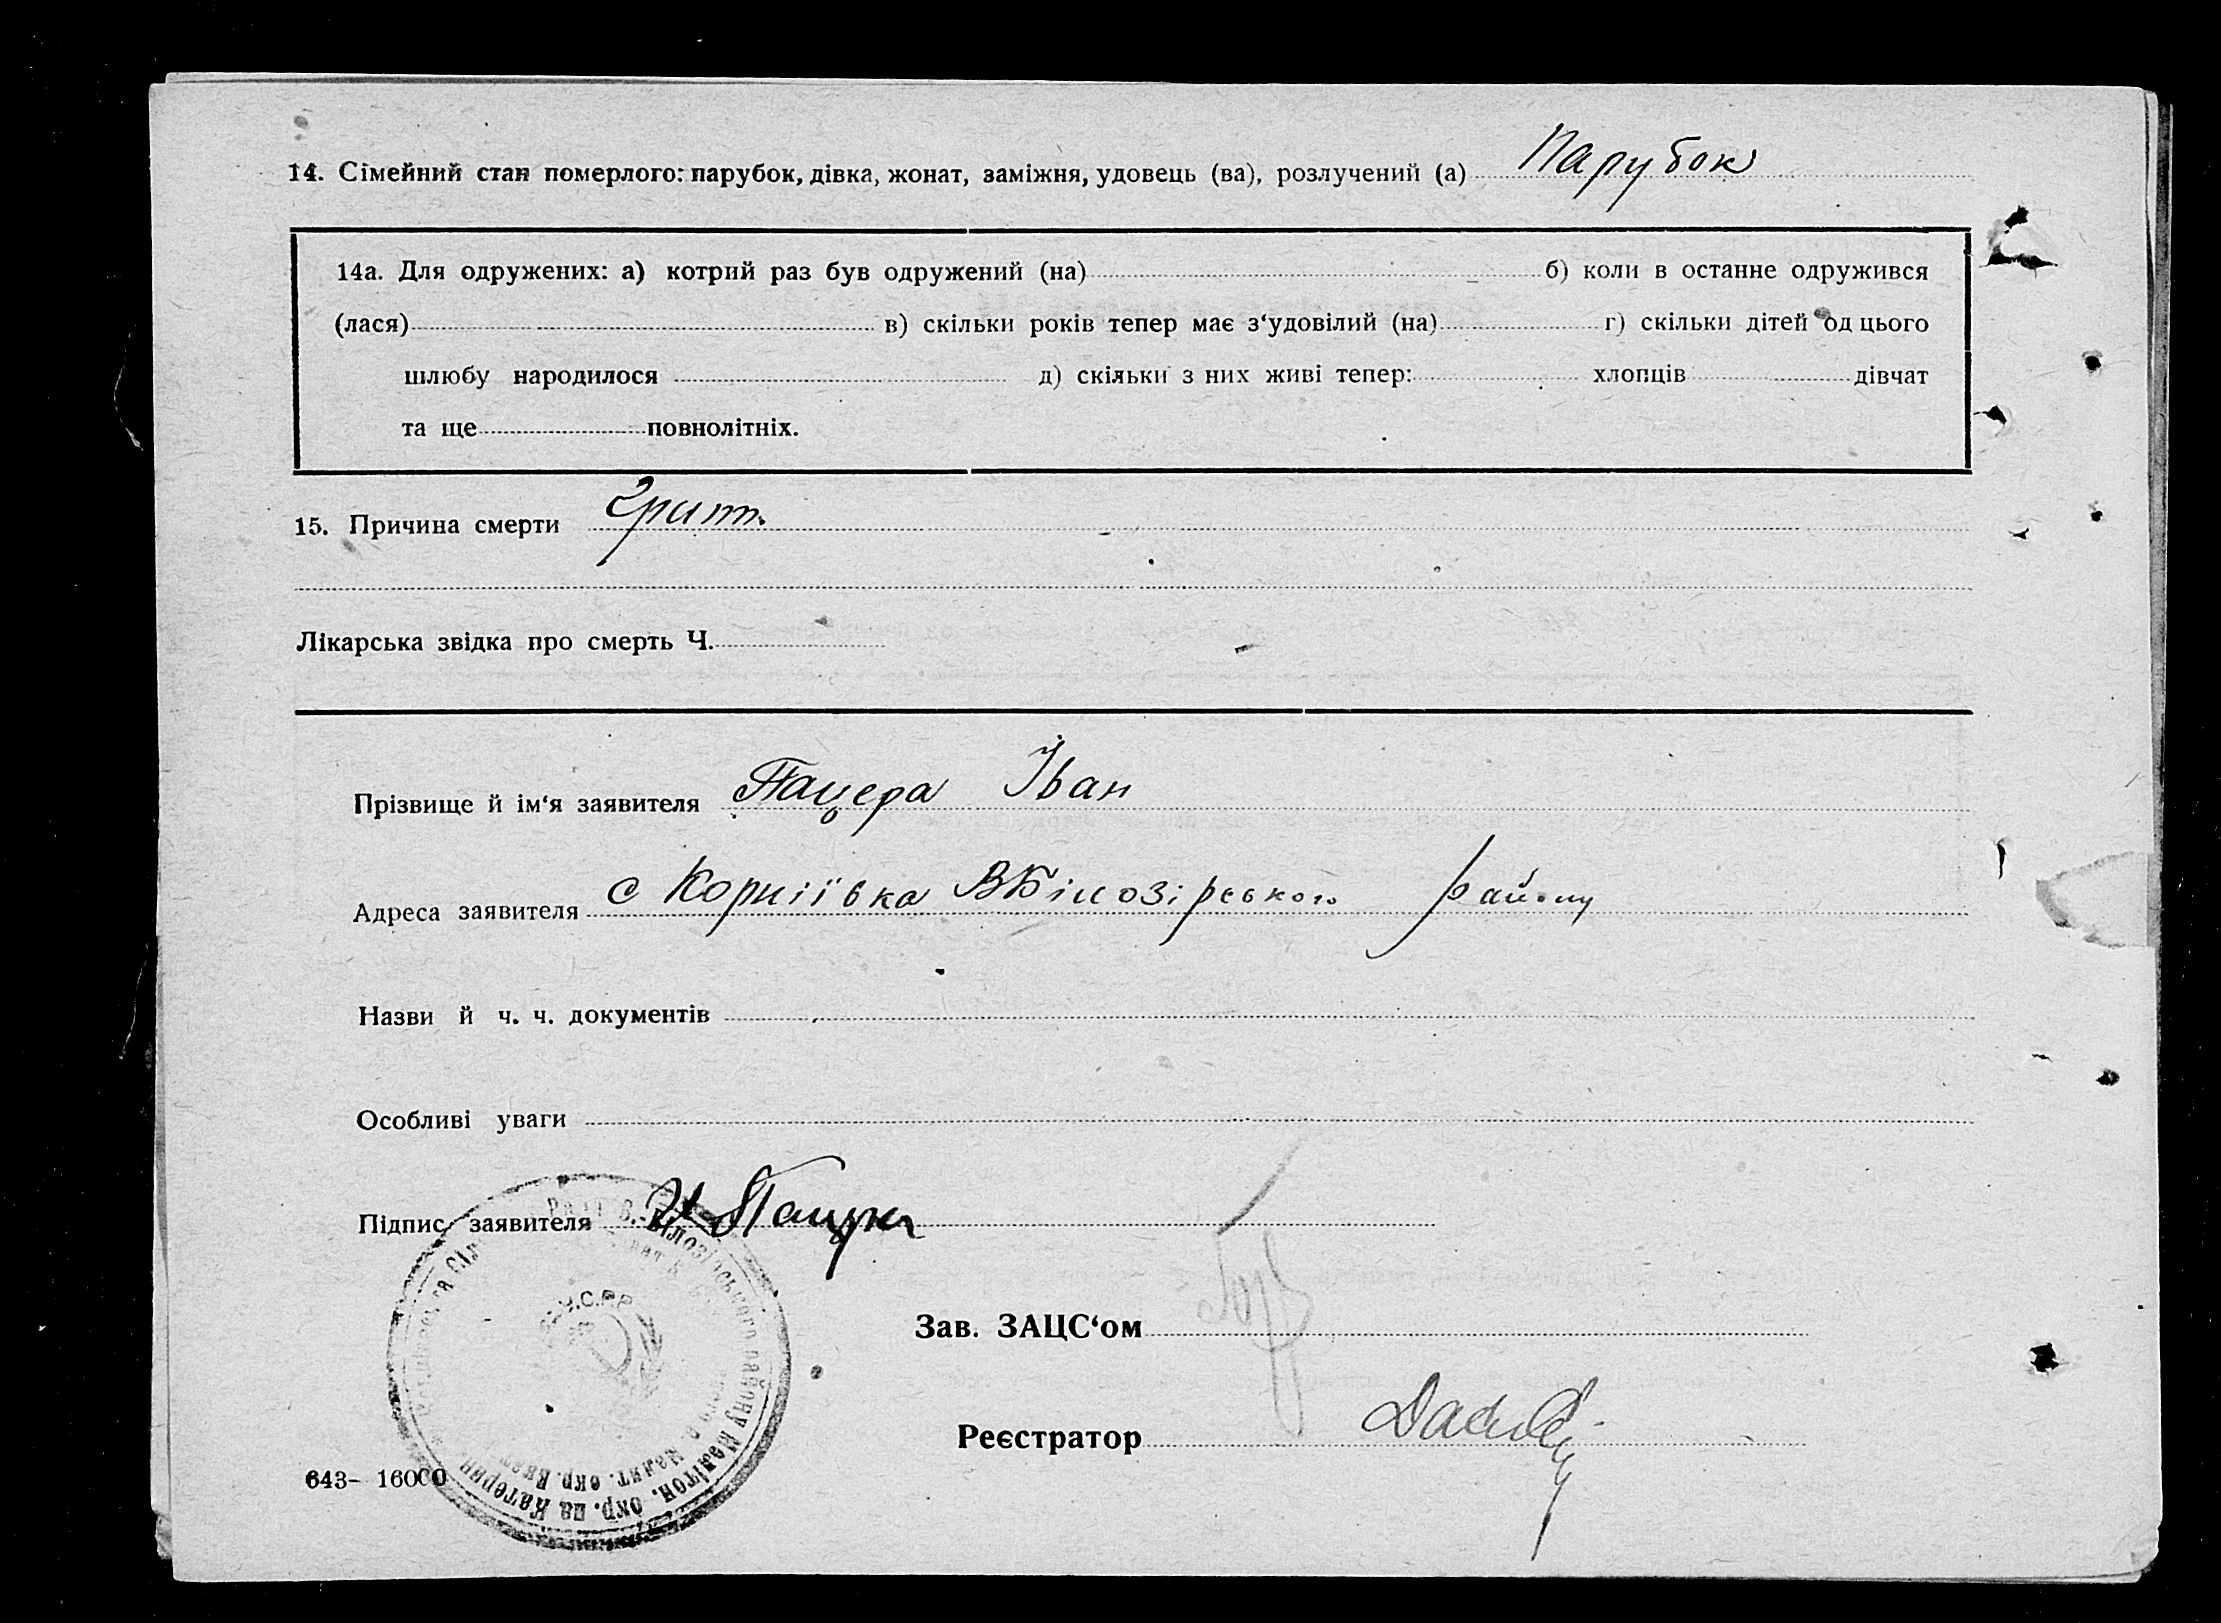 14. Сімейний стан померлого: парубок, дівка, жонат, заміжня, удовець (ва), розлучений (а) Парубок
14а. Для одружених: а) котрий раз був одружений (на) б) коли в останне одружився
(лася) в) скільки років тепер має з‘удовілий (на) г) скільки дітей од цього
шлюбу народилося д) скільки з них живі тепер: хлопців дівчат
та ще повнолітніх.
15. Причина смерти Грип
Лікарська звідка про смерть Ч.
Прізвище й ім‘я заявителя Пацера Іван
Адреса заявителя с Корніївка ВБілозірського району
Назви й ч. ч. документів
Особливі уваги
Підпис заявителя И Пацера
У.С.Р.Р
Білозірського району Меліток. окр. на Катерин
Зав. ЗАЦС‘ом
Реєстратор
643- 16000